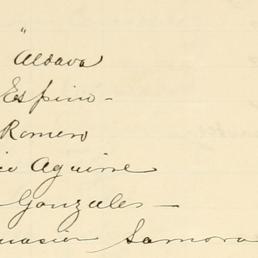 "
Aldava
Espino -
Romero
Aguirre
Gonzales -
Samora